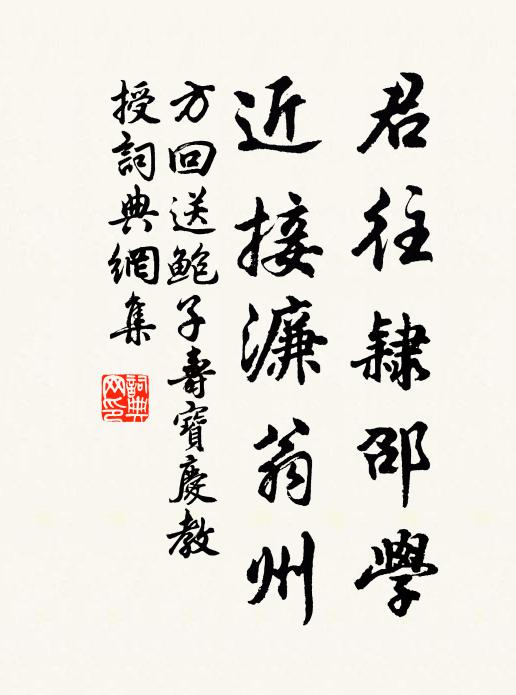 君往隸邵學
近接濂翁州
方回送鮑子壽寶慶教
授詞典網集
詞典網印